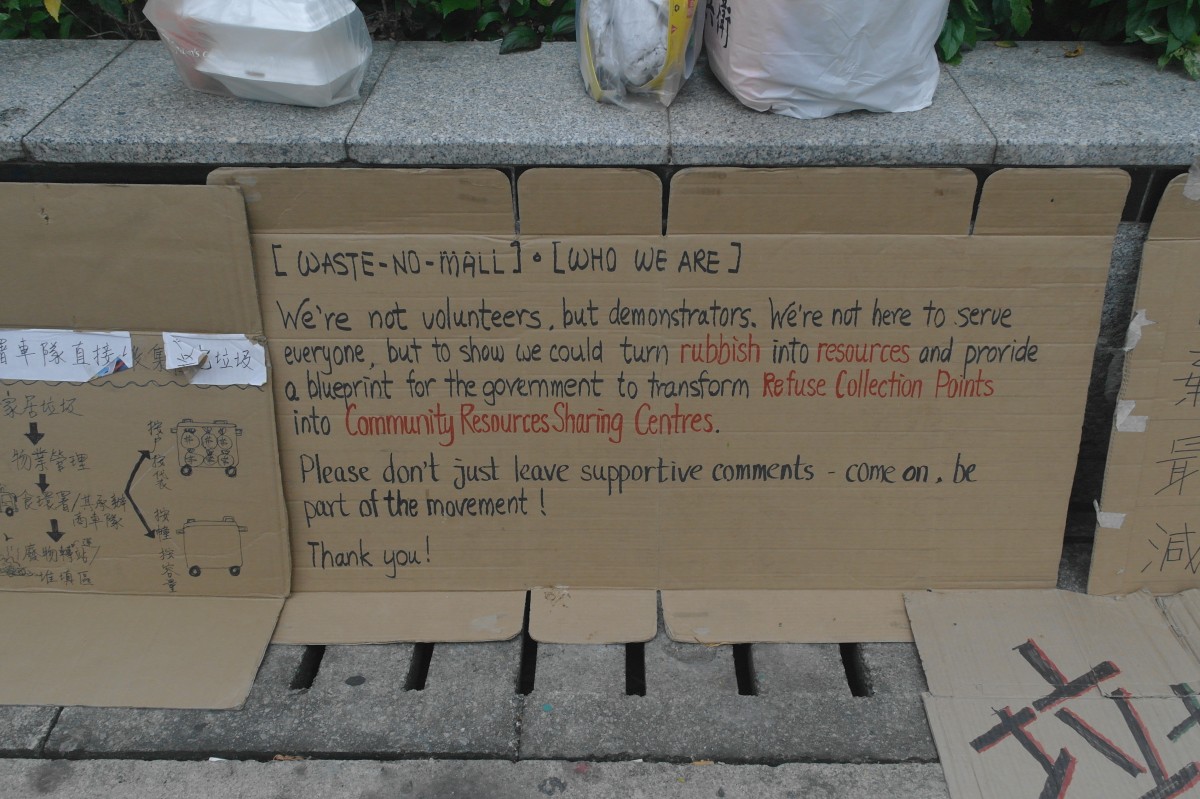 [WASTE-NO-MALL]•[WHO WE ARE]
We're not volunteers, but demonstrators. We're not here to serve
everyone, but to show we could turn rubbish into resources and provide
a blueprint for the government to transform Refuse Collection Points
into Community Resources Sharing Centres.
Please don't just leave supportive comments - come on, be
part of the movement!
Thank you!
署車隊直接收集 垃圾
家居垃圾
物業管理
食環署/其承辦
商車隊
廢物轉運站/
堆填區
按戶
按袋
按幢
按容量
最
減
垃